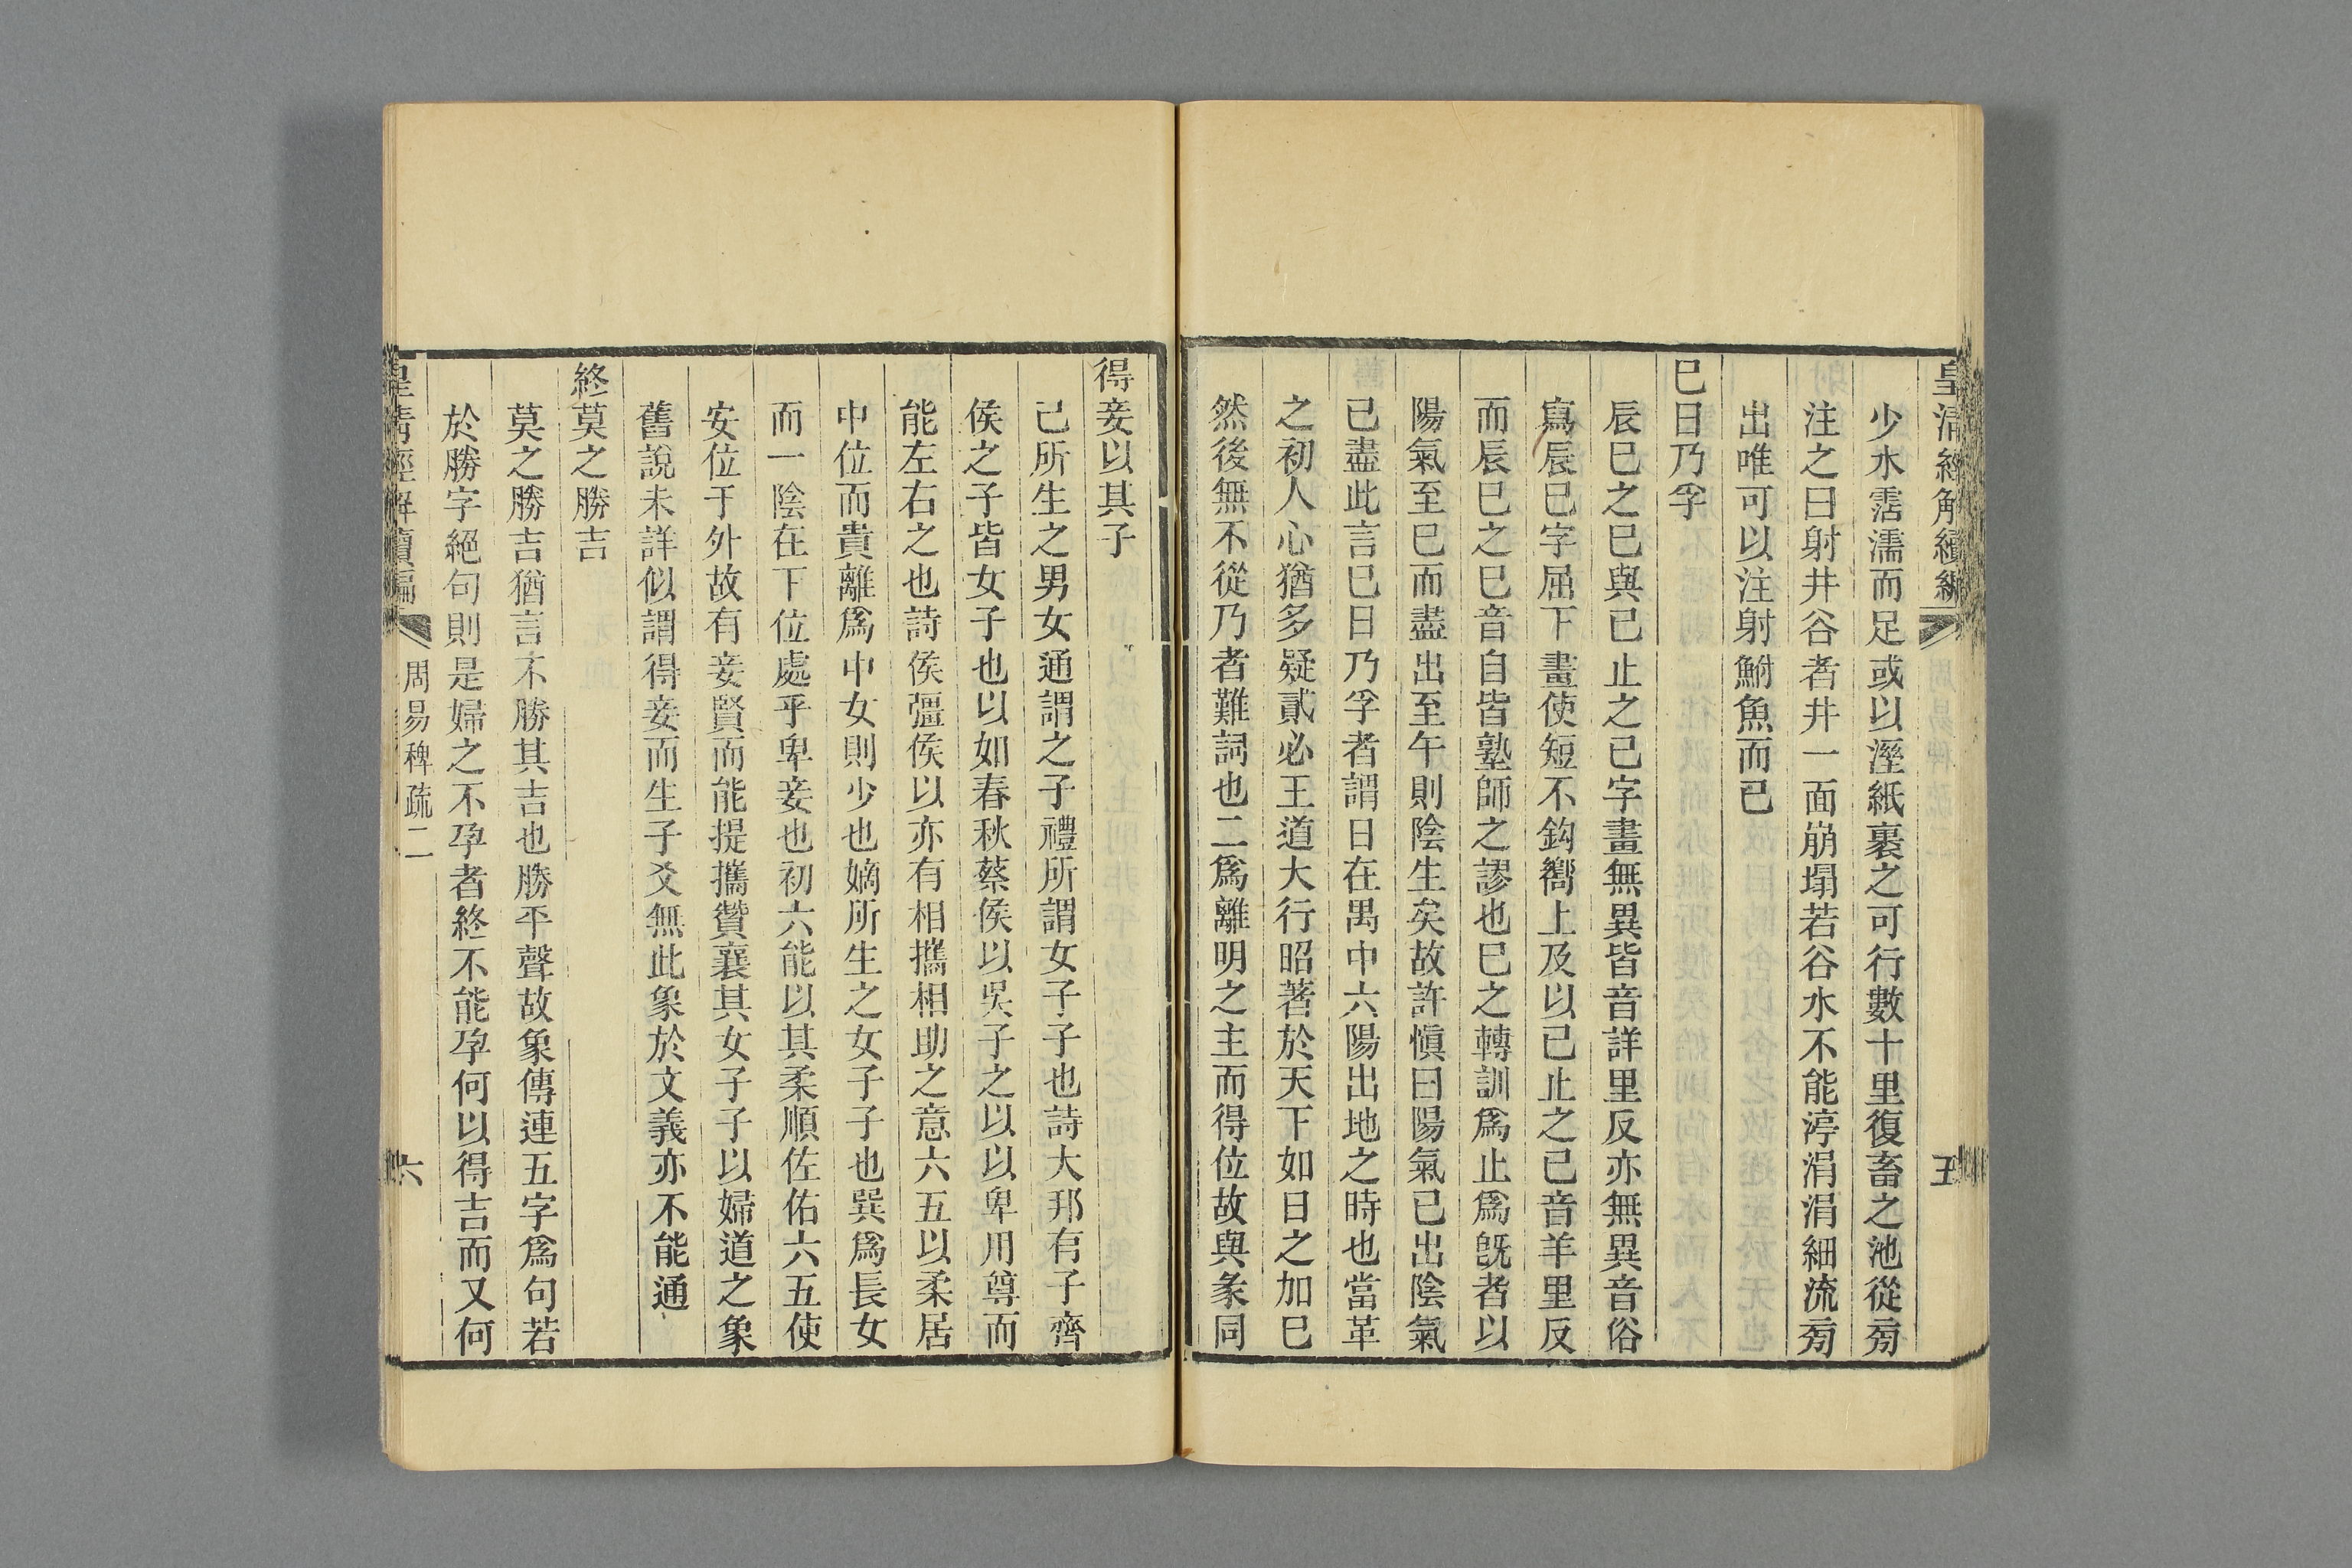 皇清經解續編
五
少水霑濡而足或以溼紙裹之可行數十里復畜之池從㫄
注之曰射井谷者井一面崩塌若谷水不能渟涓涓細流㫄
出唯可以注射鮒魚而已
巳日乃孚
辰巳之巳與已止之已字畫無異皆音詳里反亦無異音俗
寫辰巳字屈下畫使短不鈎嚮上及以已止之已音羊里反
而辰巳之巳音自皆塾師之謬也巳之轉訓爲止爲旣者以
陽氣至巳而盡出至午則陰生矣故許愼曰陽氣已出陰氣
已盡此言巳日乃孚者謂日在禺中六陽出地之時也當革
之初人心猶多疑貳必王道大行昭著於天下如日之加巳
然後無不從乃者難詞也二爲離明之主而得位故與彖同
得妾以其子
己所生之男女通謂之子禮所謂女子子也詩大邦有子齊
侯之子皆女子也以如春秋蔡侯以吳子之以以卑用尊而
能左右之也詩侯彊侯以亦有相攜相助之意六五以柔居
中位而貴離爲中女則少也嫡所生之女子子也巽爲長女
而一陰在下位處乎卑妾也初六能以其柔順佐佑六五使
安位于外故有妾賢而能提攜贊襄其女子子以婦道之象
舊說未詳似謂得妾而生子爻無此象於文義亦不能通
終莫之勝吉
莫之勝吉猶言不勝其吉也勝平聲故象傳連五字爲句若
於勝字絕句則是婦之不孕者終不能孕何以得吉而又何
皇清經解續編
周易稗疏二
六